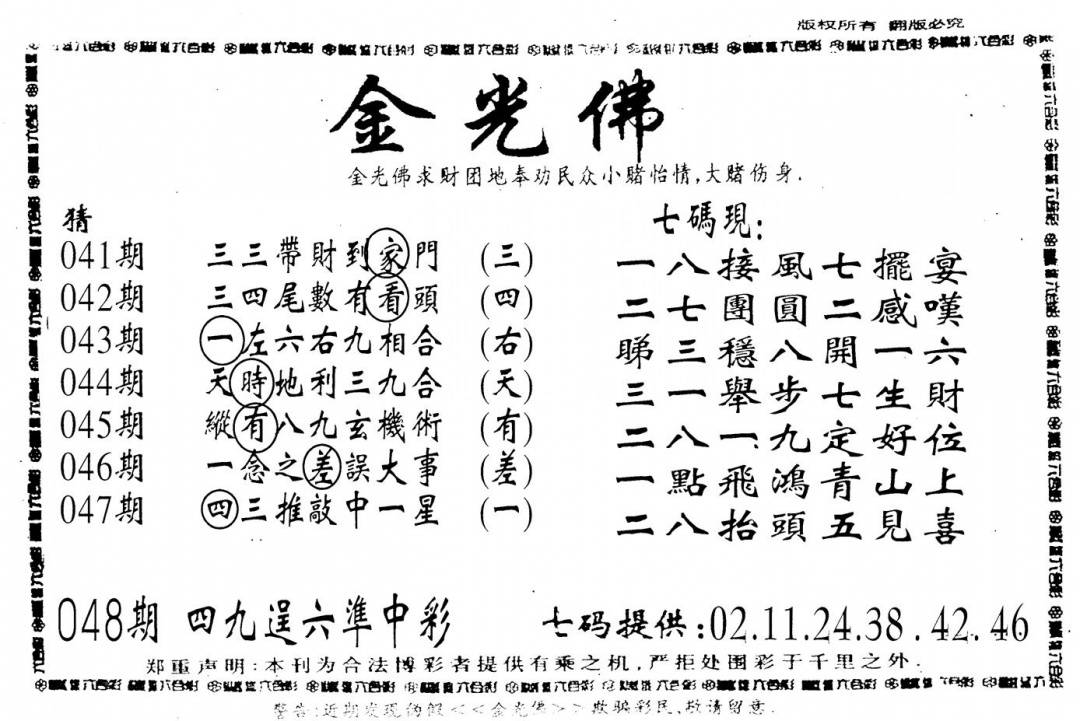 版权所有 翻版必究
金光佛
金光佛求财团地奉劝民众小赌怡情,大赌伤身.
猜
041期 三三帶財到家門 (三)
042期 三四尾數有看頭 (四)
043期 一左六右九相合 (右)
044期 天時地利三九合 (天)
045期 縱有八九玄機術 (有)
046期 一念之差誤大事 (差)
047期 四三推敲中一星 (一)
七碼現:
一八接風七擺宴
二七團圓二感嘆
睇三穩八開一六
三一舉步七生財
二八一九定好位
一點飛鴻青山上
二八抬頭五見喜
048期 四九逞六準中彩
七码提供:02.11.24.38.42.46
郑重声明:本刊为合法博彩者提供有乘之机,严拒处围彩于千里之外.
警告:近期发现的假<<金光佛>>欺骗彩民,敬请留意.